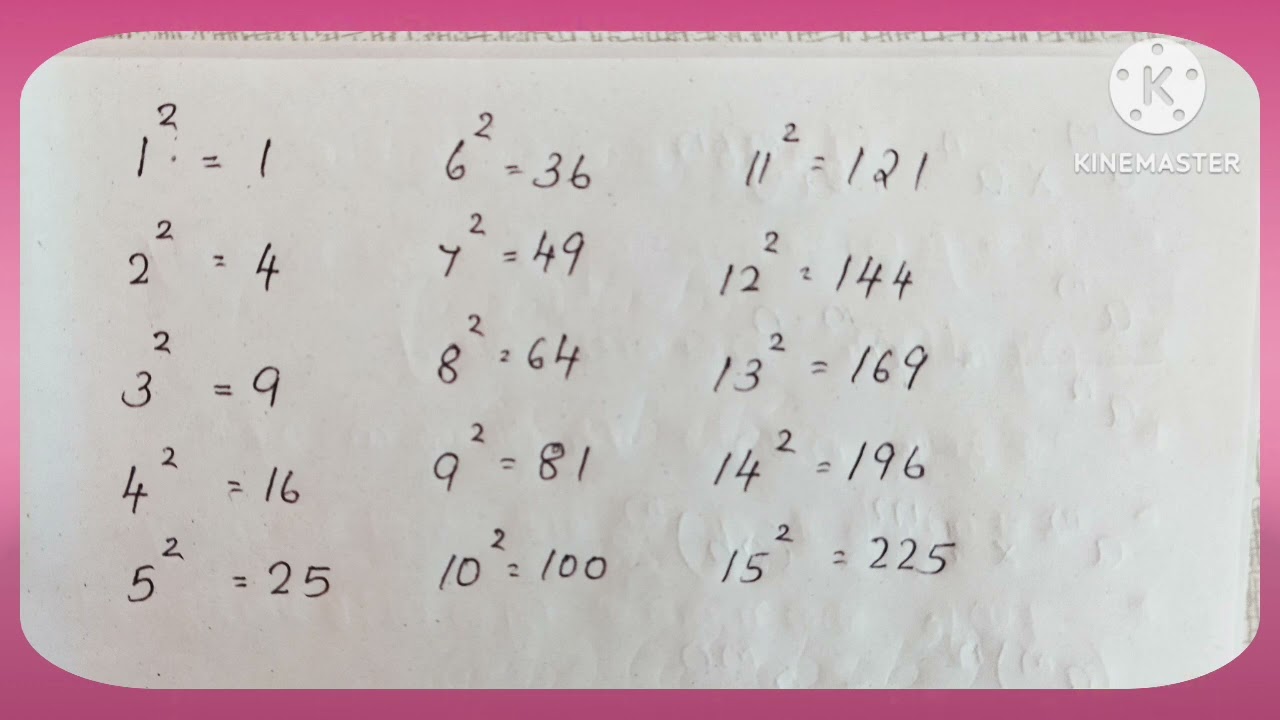 1² = 1
2² = 4
3² = 9
4² = 16
5² = 25
6² = 36
7² = 49
8² = 64
9² = 81
10² = 100
11² = 121
12² = 144
13² = 169
14² = 196
15² = 225
K
KINEMASTER